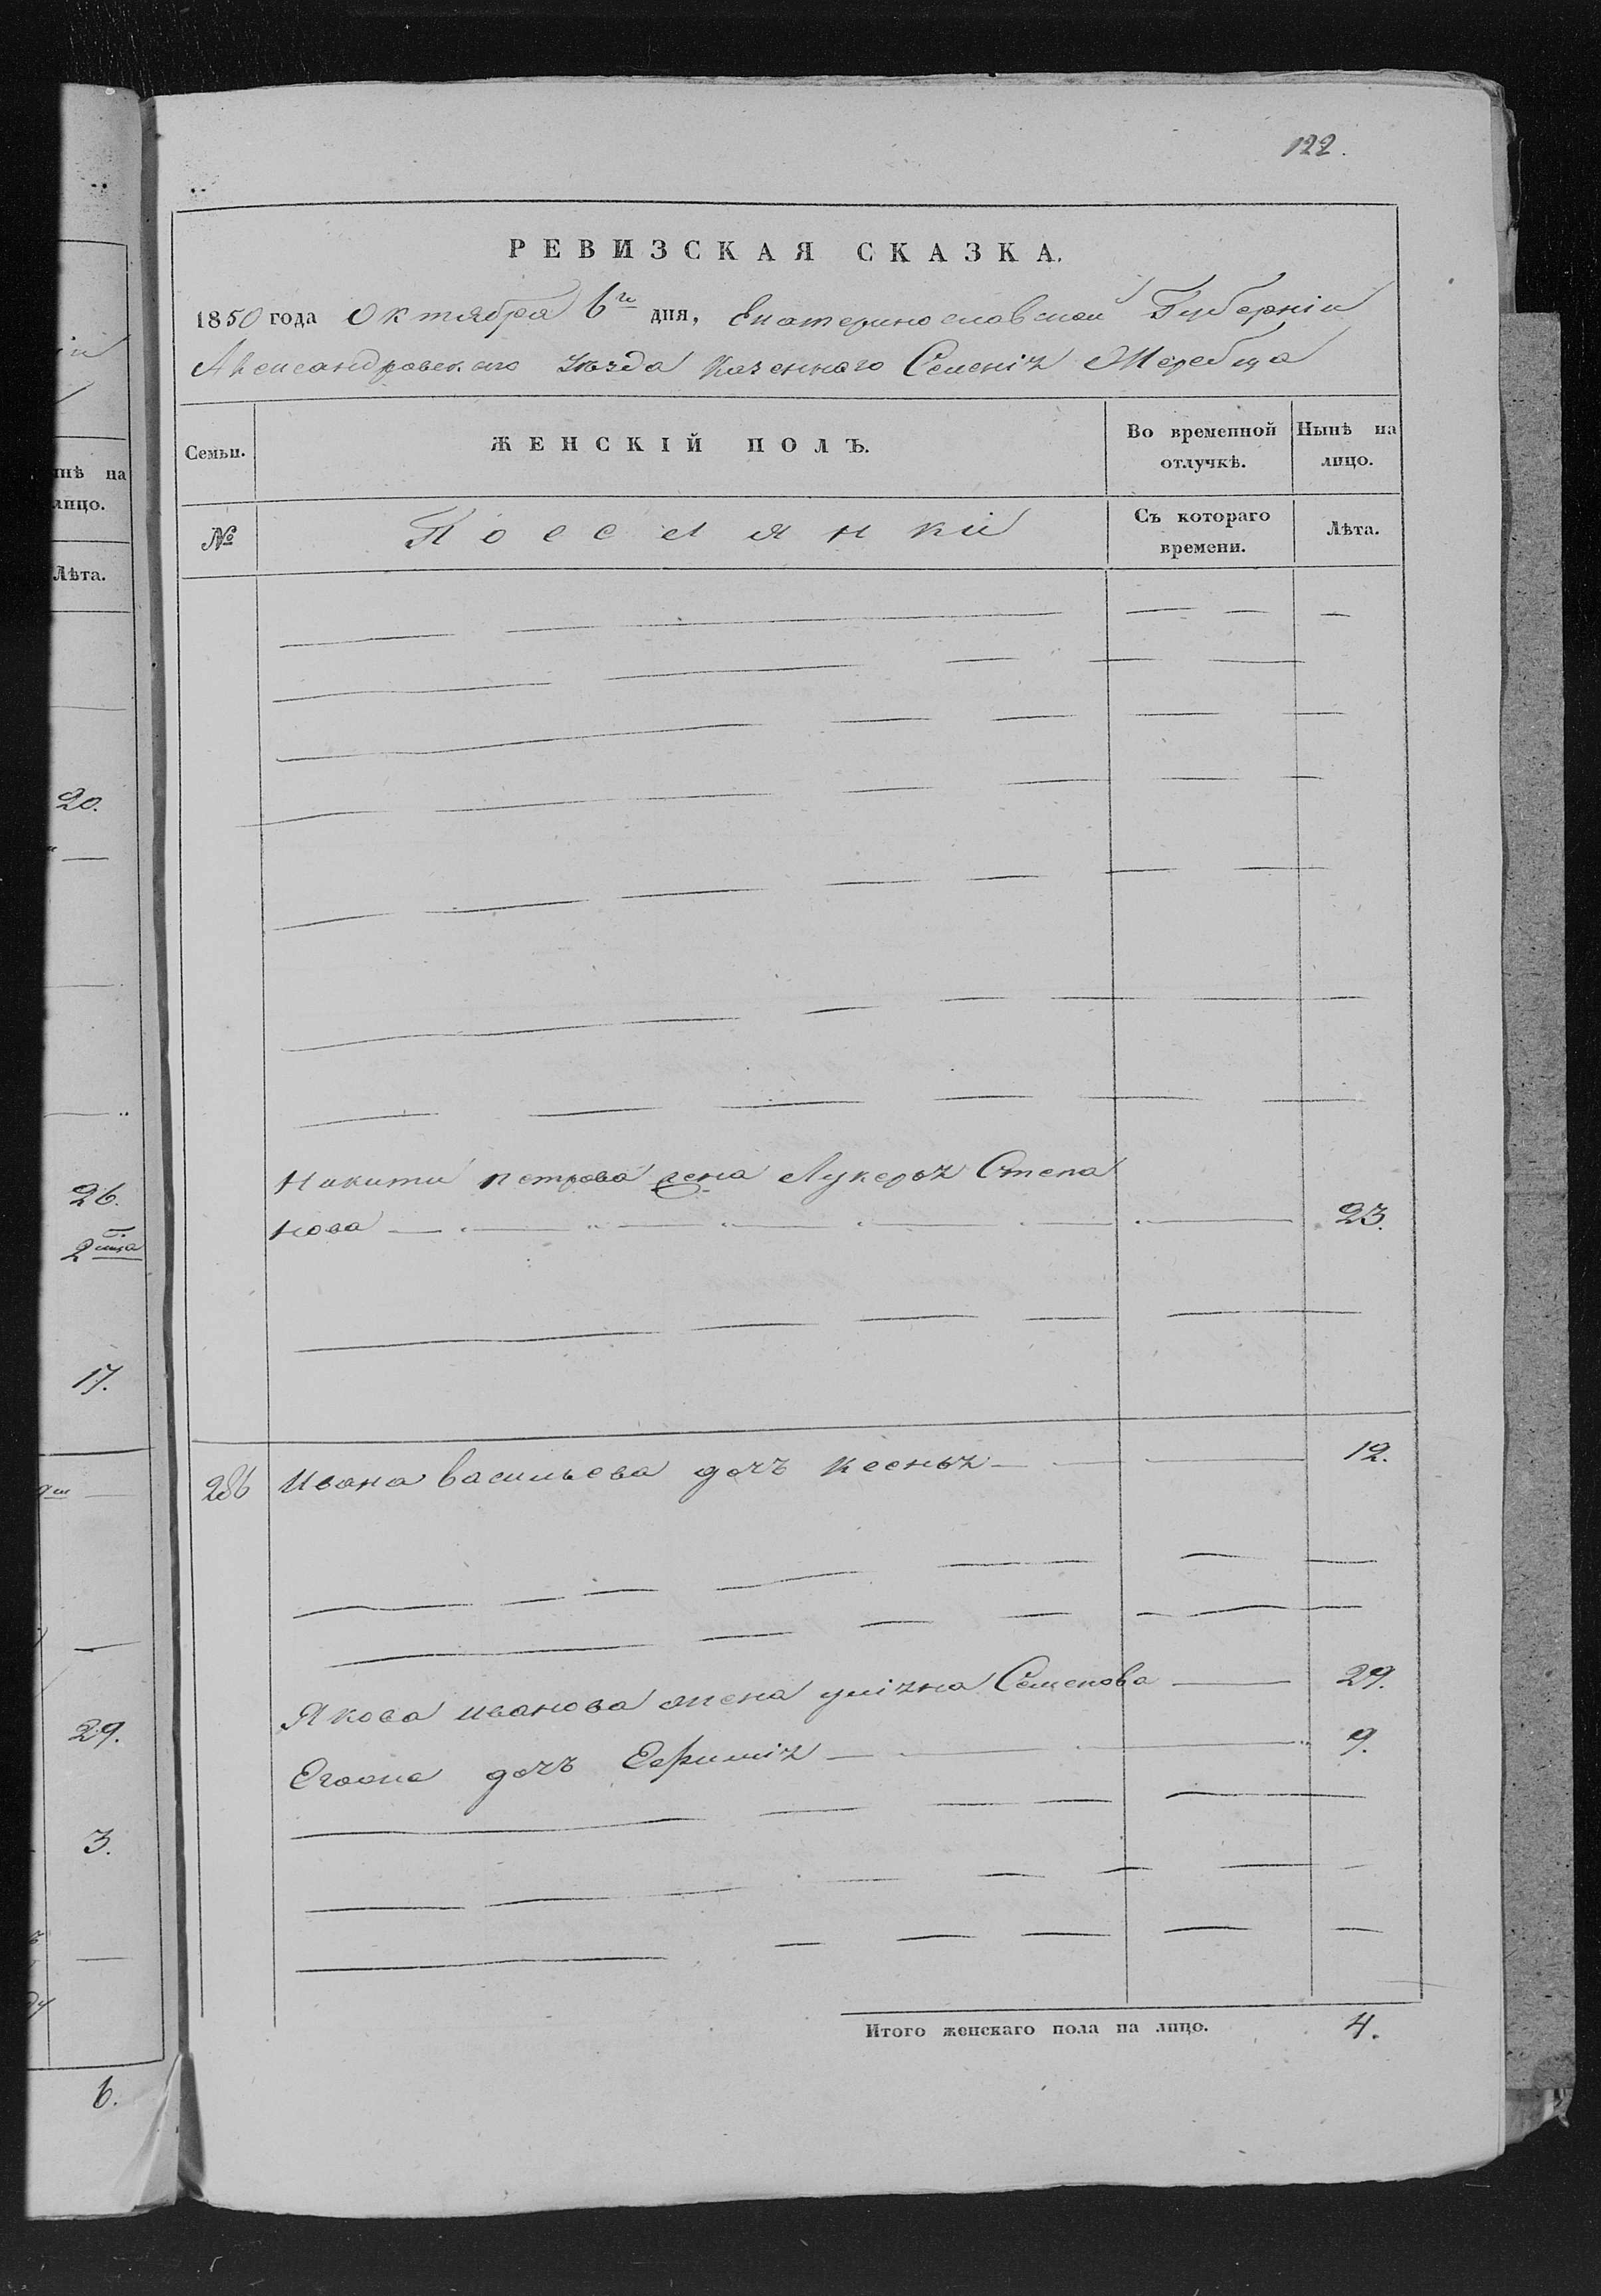 122.
РЕВИЗСКАЯ СКАЗКА.
1850 года Октября 6го дня, Екатеринославской Губерніи
Александровскаго Уѣзда Казеннаго Селенія Жеребца
Семьи. ЖЕНСКІЙ ПОЛЪ. Во временной отлучкѣ. Нынѣ на лицо.
№ Поселянки Съ котораго времени. Лѣта.
Никити петрова жена Лукерья Степа
нова 23.
286 Ивана васильева дочь Ксенья 12.
Якова иванова жена улiяна Семенова 29.
Егоже дочь Ефимія 9.
Итого женскаго пола на лицо. 4.
лицо.
Лѣта.
20.
26.
17.
29.
3.
6.